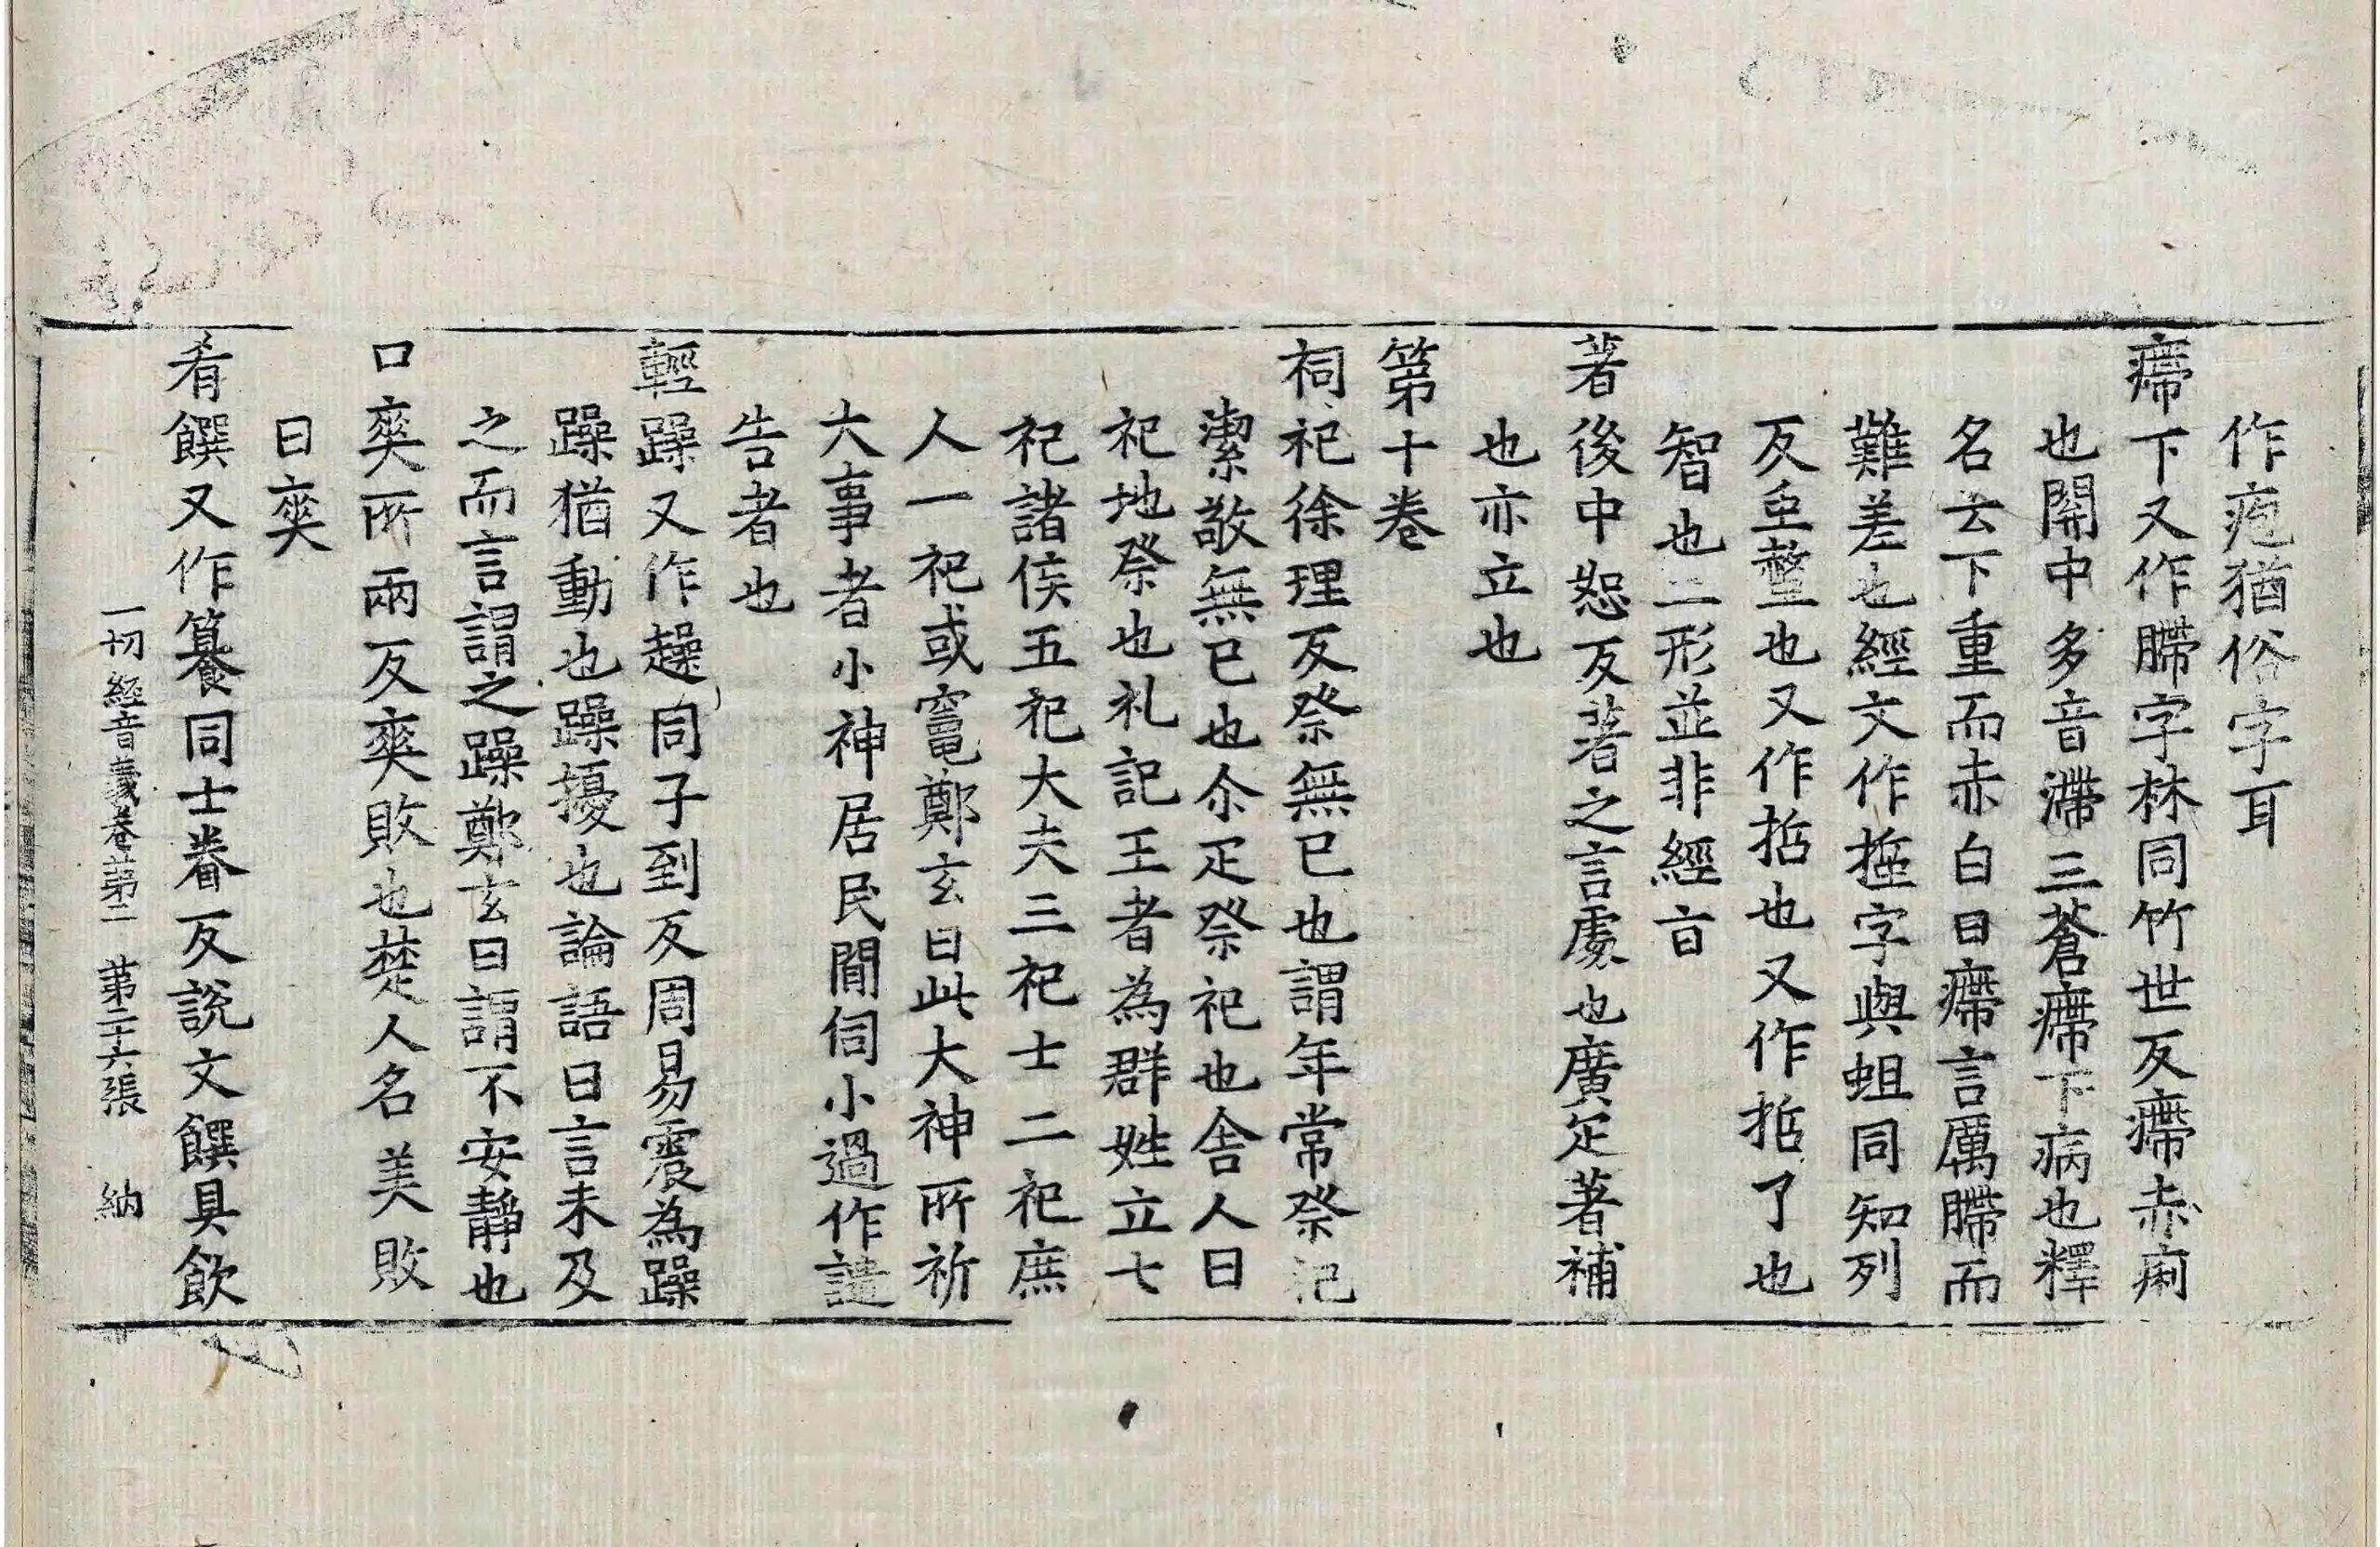 作疱猶俗字耳
㿃下又作䐭字林同竹世反㿃赤痢
也關中多音滯三蒼㿃下病也釋
名云下重而赤白曰㿃言厲䐭而
難差也經文作𢱟字與蛆同知列
反亘螫也又作掂也又作掂了也
智也二形並非經旨
著後中恕反著之言處也廣疋著補
也亦立也
第十卷
祠祀徐理反祭無已也謂年常祭祀
潔敬無已也尒疋祭祀也舍人曰
祀地祭也礼記王者為群姓立七
祀諸侯五祀大夫三祀士二祀庶
人一祀或竈鄭玄曰此大神所祈
大事者小神居民間伺小過作譴
告者也
輕躁又作趮同子到反周易震為躁
躁猶動也躁擾也論語曰言未及
之而言謂之躁鄭玄曰謂不安靜也
口爽所兩反爽敗也楚人名美敗
曰爽
肴饌又作籑同士眷反說文饌具飲
一切經音義卷第二 第二十六張 納